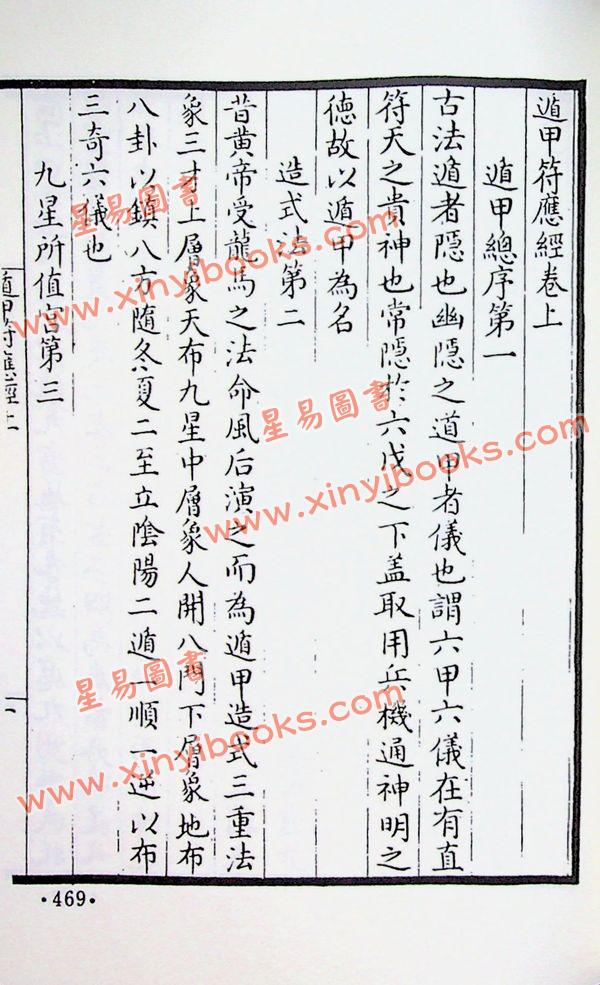 遁甲符應經卷上
遁甲總序第一
古法遁者隱也幽隱之道甲者儀也謂六甲六儀在有直
符天之貴神也常隱於六戊之下盖取用兵機通神明之
德故以遁甲為名
造式法第二
昔黄帝受龍馬之法命風后演之而為遁甲造式三重法
象三才上層象天布九星中層象人開八門下層象地布
八卦以鎮八方随冬夏二至立陰陽二遁一順一逆以布
三奇六儀也
九星所值宫第三
遁甲符應經上
一
·469·
星易圖書
www.xinyibooks.com
星易圖書
www.xinyibooks.com
星易圖書
www.xinyibooks.com